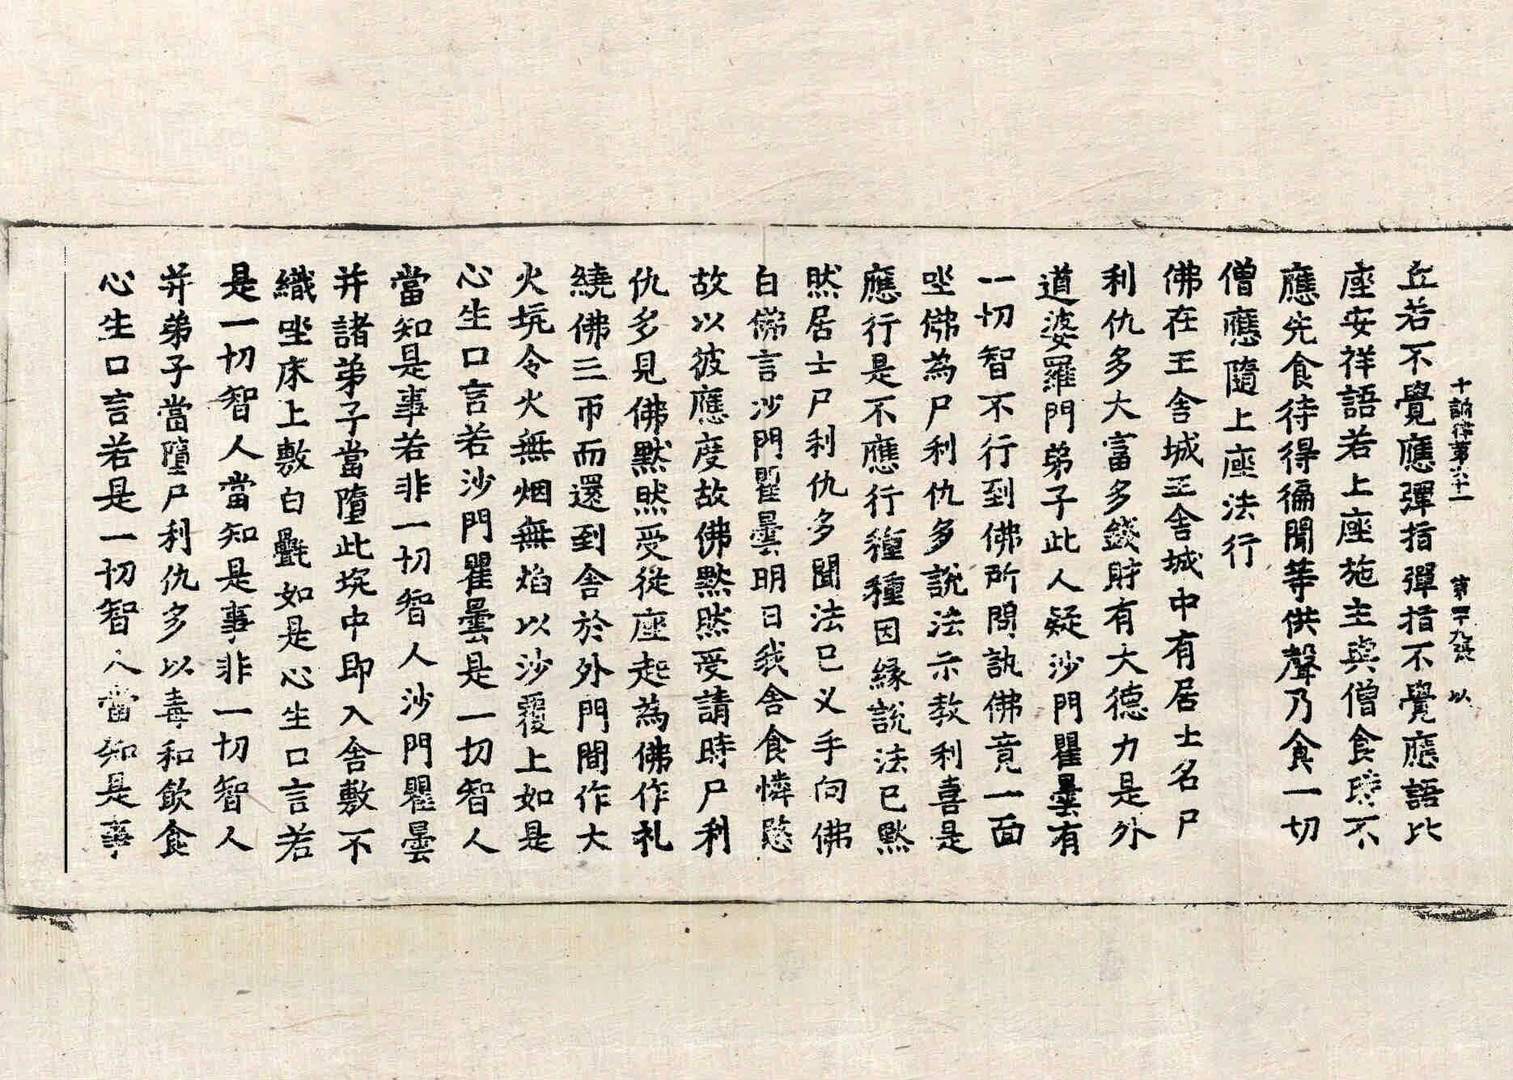 十誦律第六十一　第四十九張　以
丘若不覺應彈指彈指不覺應語比
座安祥語若上座施主與僧食時不
應先食待得徧聞等供聲乃食一切
僧應隨上座法行
佛在王舍城王舍城中有居士名尸
利仇多大富多錢財有大德力是外
道婆羅門弟子此人疑沙門瞿曇有
一切智不行到佛所問訊佛竟一面
坐佛為尸利仇多說法示教利喜是
應行是不應行種種因緣說法已默
然居士尸利仇多聞法已叉手向佛
白佛言沙門瞿曇明日我舍食憐愍
故以彼應度故佛默然受請時尸利
仇多見佛默然受從座起為佛作礼
繞佛三帀而還到舍於外門間作大
火坑令火無烟無焰以沙覆上如是
心生口言若沙門瞿曇是一切智人
當知是事若非一切智人沙門瞿曇
并諸弟子當墮此坑中即入舍敷不
織坐床上敷白㲲如是心生口言若
是一切智人當知是事非一切智人
并弟子當墮尸利仇多以毒和飲食
心生口言若是一切智人當知是事